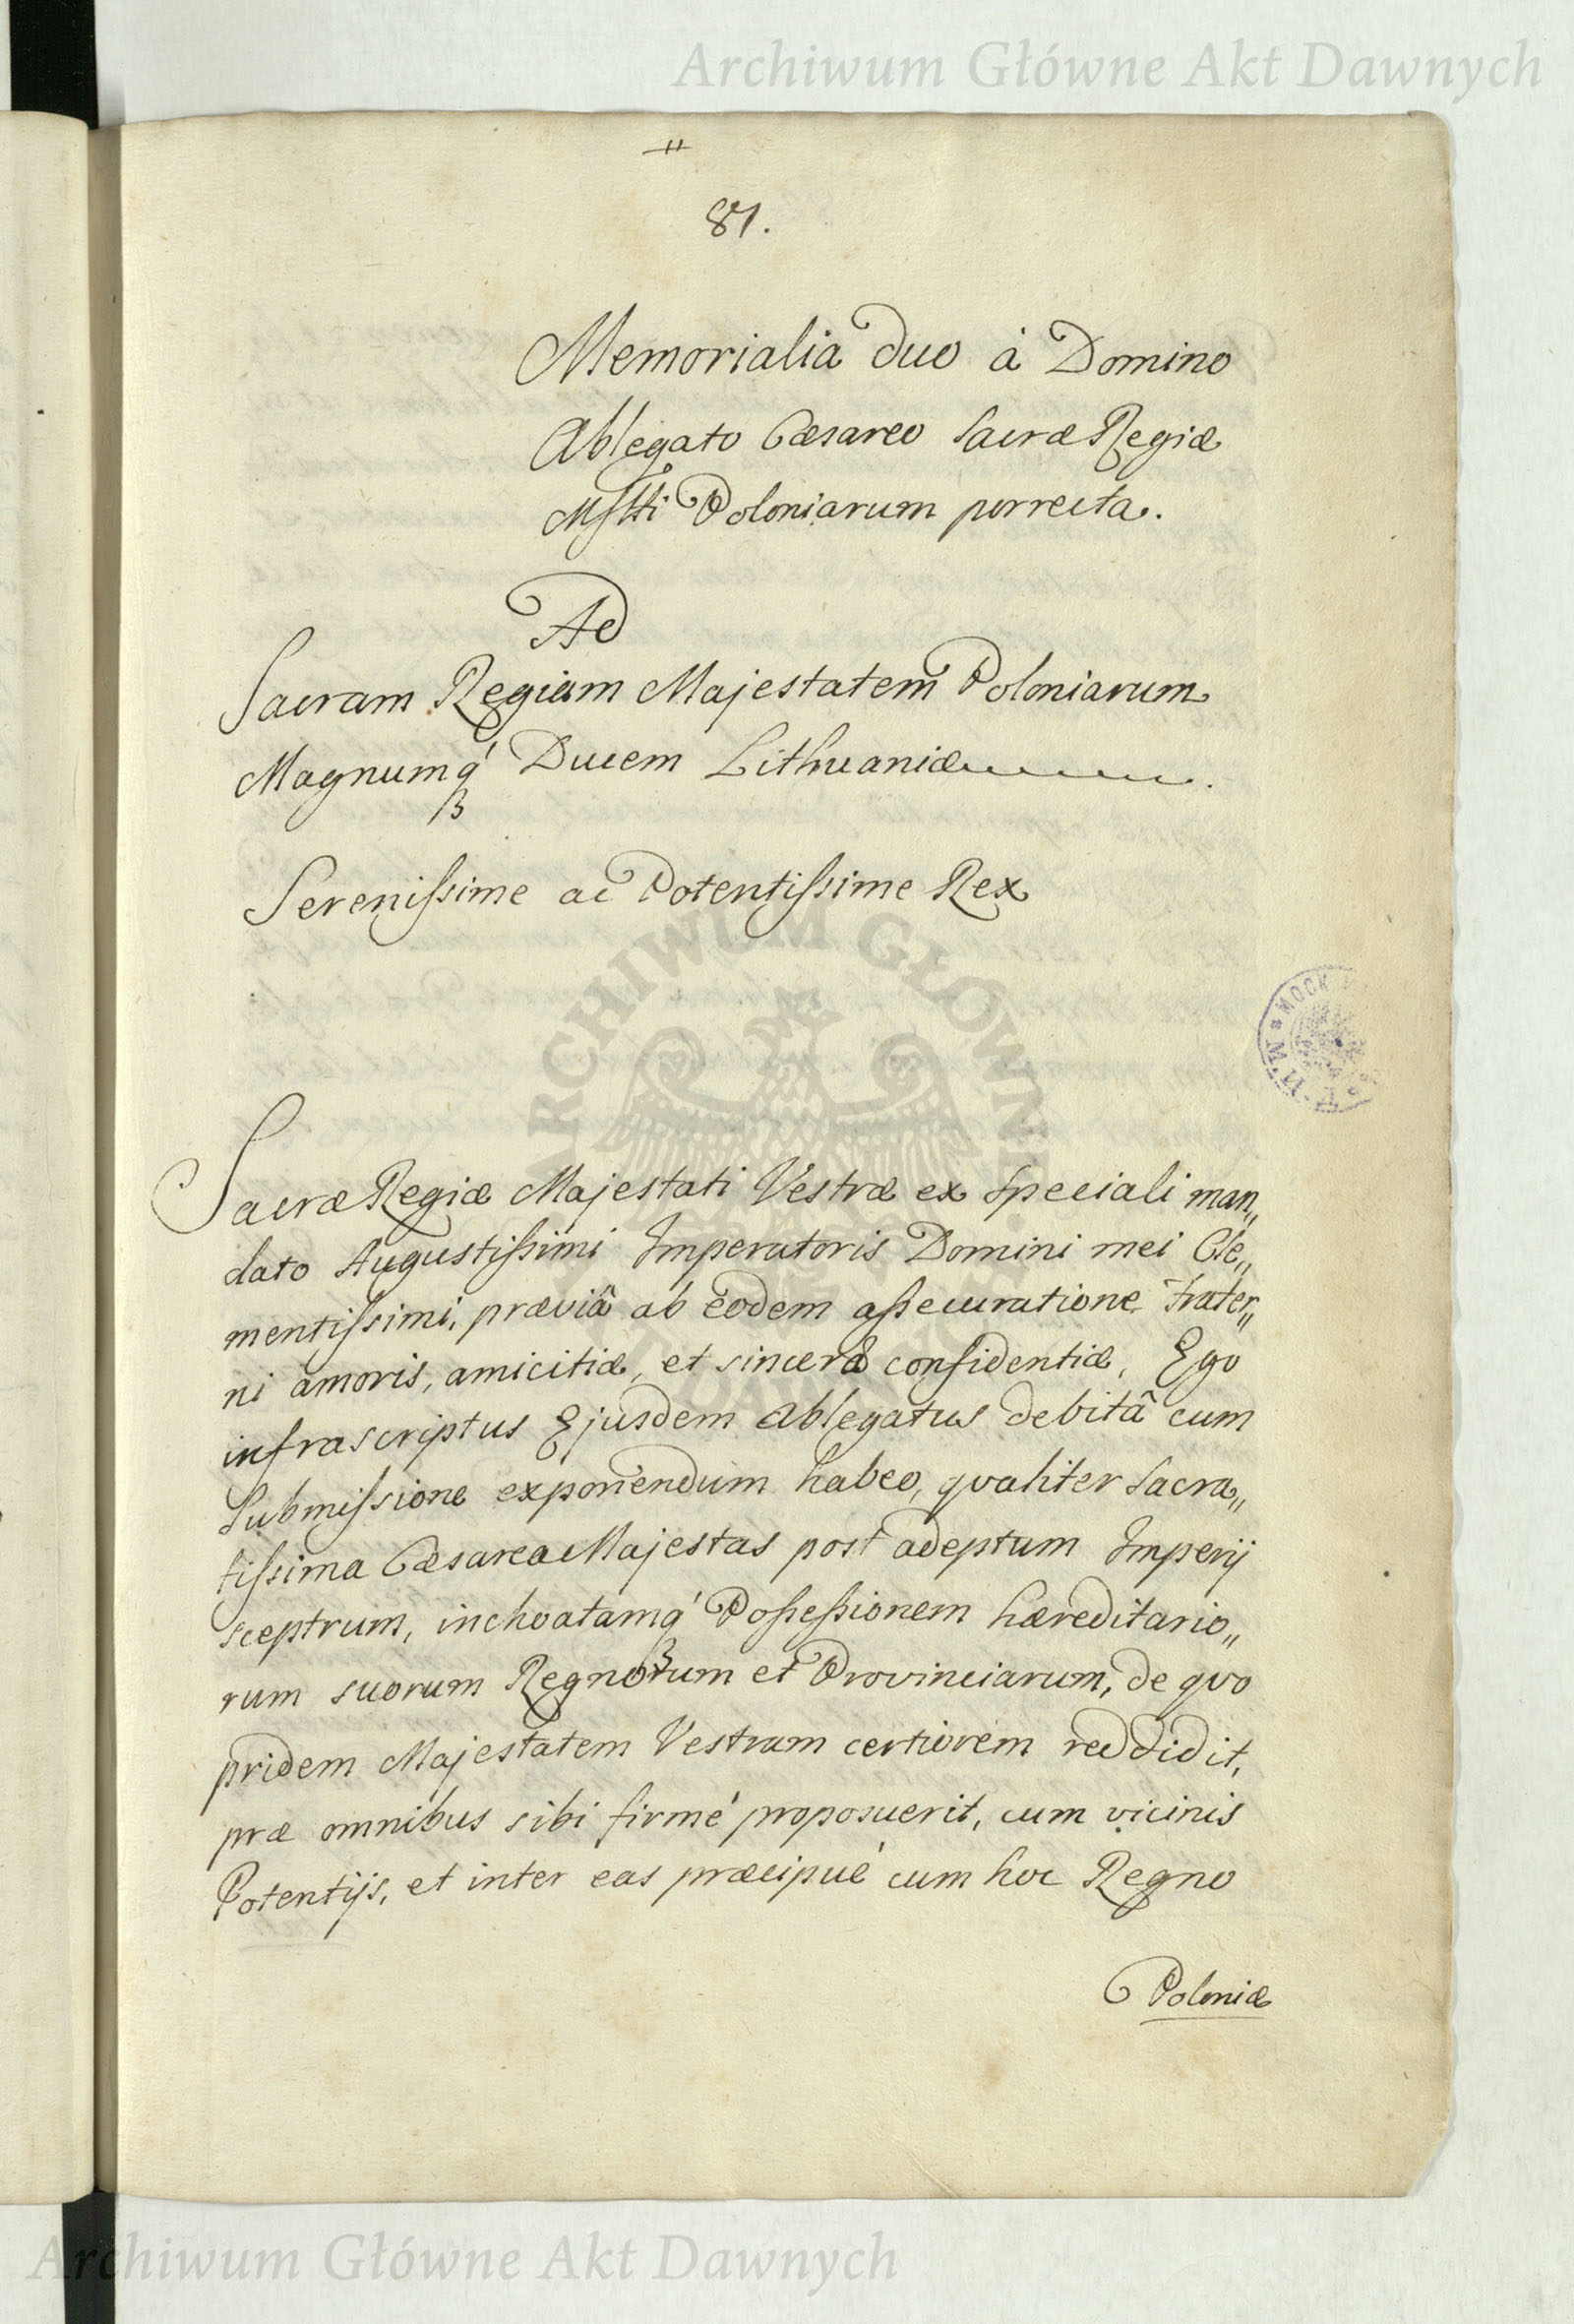 Archiwum Główne Akt Dawnych
81.
Memorialia duo à Domino
Ablegato Cæsareo Sacræ Regiæ
Mstti Poloniarum porrecta.
Ad
Sacram Regiam Majestatem Poloniarum
Magnumq́ Ducem Lithuaniæ.
Serenissime ac Potentissime Rex
Sacræ Regiæ Majestati Vestræ ex speciali man„
dato Augustissimi Imperatoris Domini mei Cle„
mentissimi, præviâ ab eodem assecuratione frater„
ni amoris, amicitiæ, et sinceræ confidentiæ, Ego
infrascriptus Ejusdem Ablegatus debitâ cum
Submissione exponendum habeo, qvaliter Sacra„
tissima Cæsarea Majestas post adeptum Imperij
sceptrum, inchoatamq́ Possessionem hæreditario„
rum suorum Regnorum et Provinciarum, de qvo
pridem Majestatem Vestram certiorem reddidit,
præ omnibus sibi firmé proposuerit, cum vicinis
Potentijs, et inter eas præcipué cum hoc Regno
Poloniæ
ARCHIWUM GŁÓWNE
Archiwum Główne Akt Dawnych